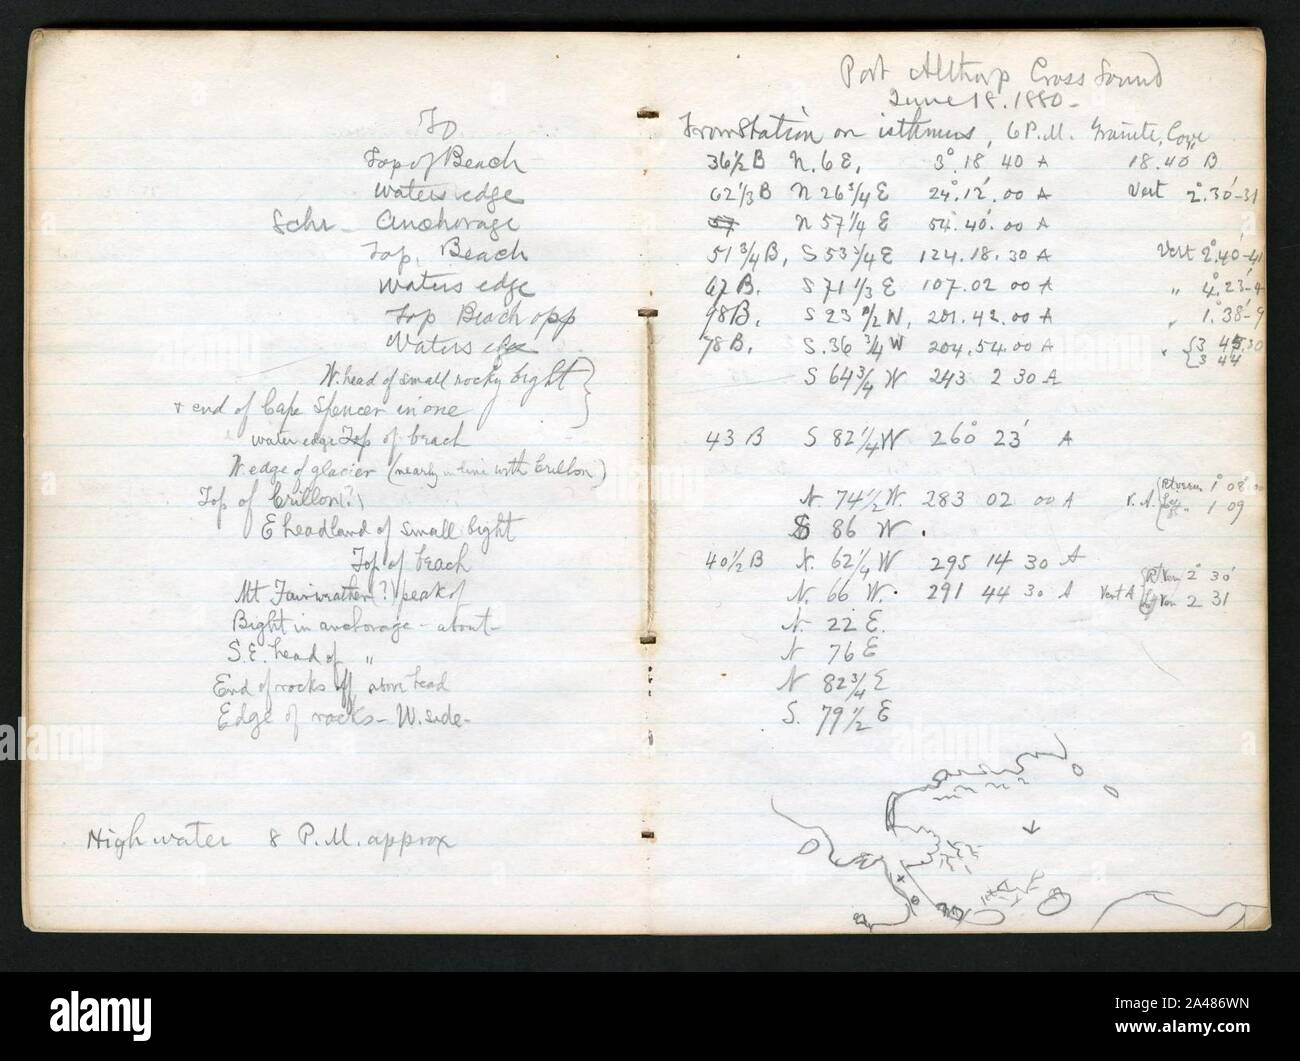 To
Top of Beach
Waters edge
Schr - Anchorage
Top, Beach
Waters edge
Top Beach opp
Waters edge
W. head of small rocky bight
+ end of Cape Spencer in one
water edge Top of beach
W. edge of glacier (nearly in line with Crillon)
Top of Crillon(?)
E headland of small bight
Top of beach
Mt Fairweather (?) peak of
Bight in anchorage - about -
S.E. head of "
End of rocks off above head
Edge of rocks - W. side -
High water 8 P.M. approx
Port Althorp Cross Sound
June 18. 1880 -
From Station on isthmus, 6 P.M. Granite Cove
36½ B N. 6 E. 3°. 18' 40 A 18.40 B
62⅓ B N 26¾ E 24°. 12'. 00 A Vert 2°. 30'-31
N 57¼ E 54. 40'. 00 A
51¾ B, S 53¾ E 124. 18. 30 A Vert 2°. 40'-41
67 B. S 71⅓ E 107. 02 00 A " 4°. 23'-
98 B. S 23 201. 42. 00 A " 1°. 38'-9
78 B. S. 36¾ W 204. 54. 00 A " { 3 45.30
3 44
S 64¾ W 243 2 30 A
43 B S 82¼ W 260° 23' A
N. 74½ W. 283 02 00 A V. A { 1° 08'
1 09
S 86 W.
40½ B N. 62¼ W 295 14 30 A
N. 66 W. 291 44 30 A Vert A { R Ver 2° 30'
Ver 2 31
N. 22 E.
N 76 E
N 82¾ E
S. 79½ E
alamy
Image ID: 2A486WN
www.alamy.com